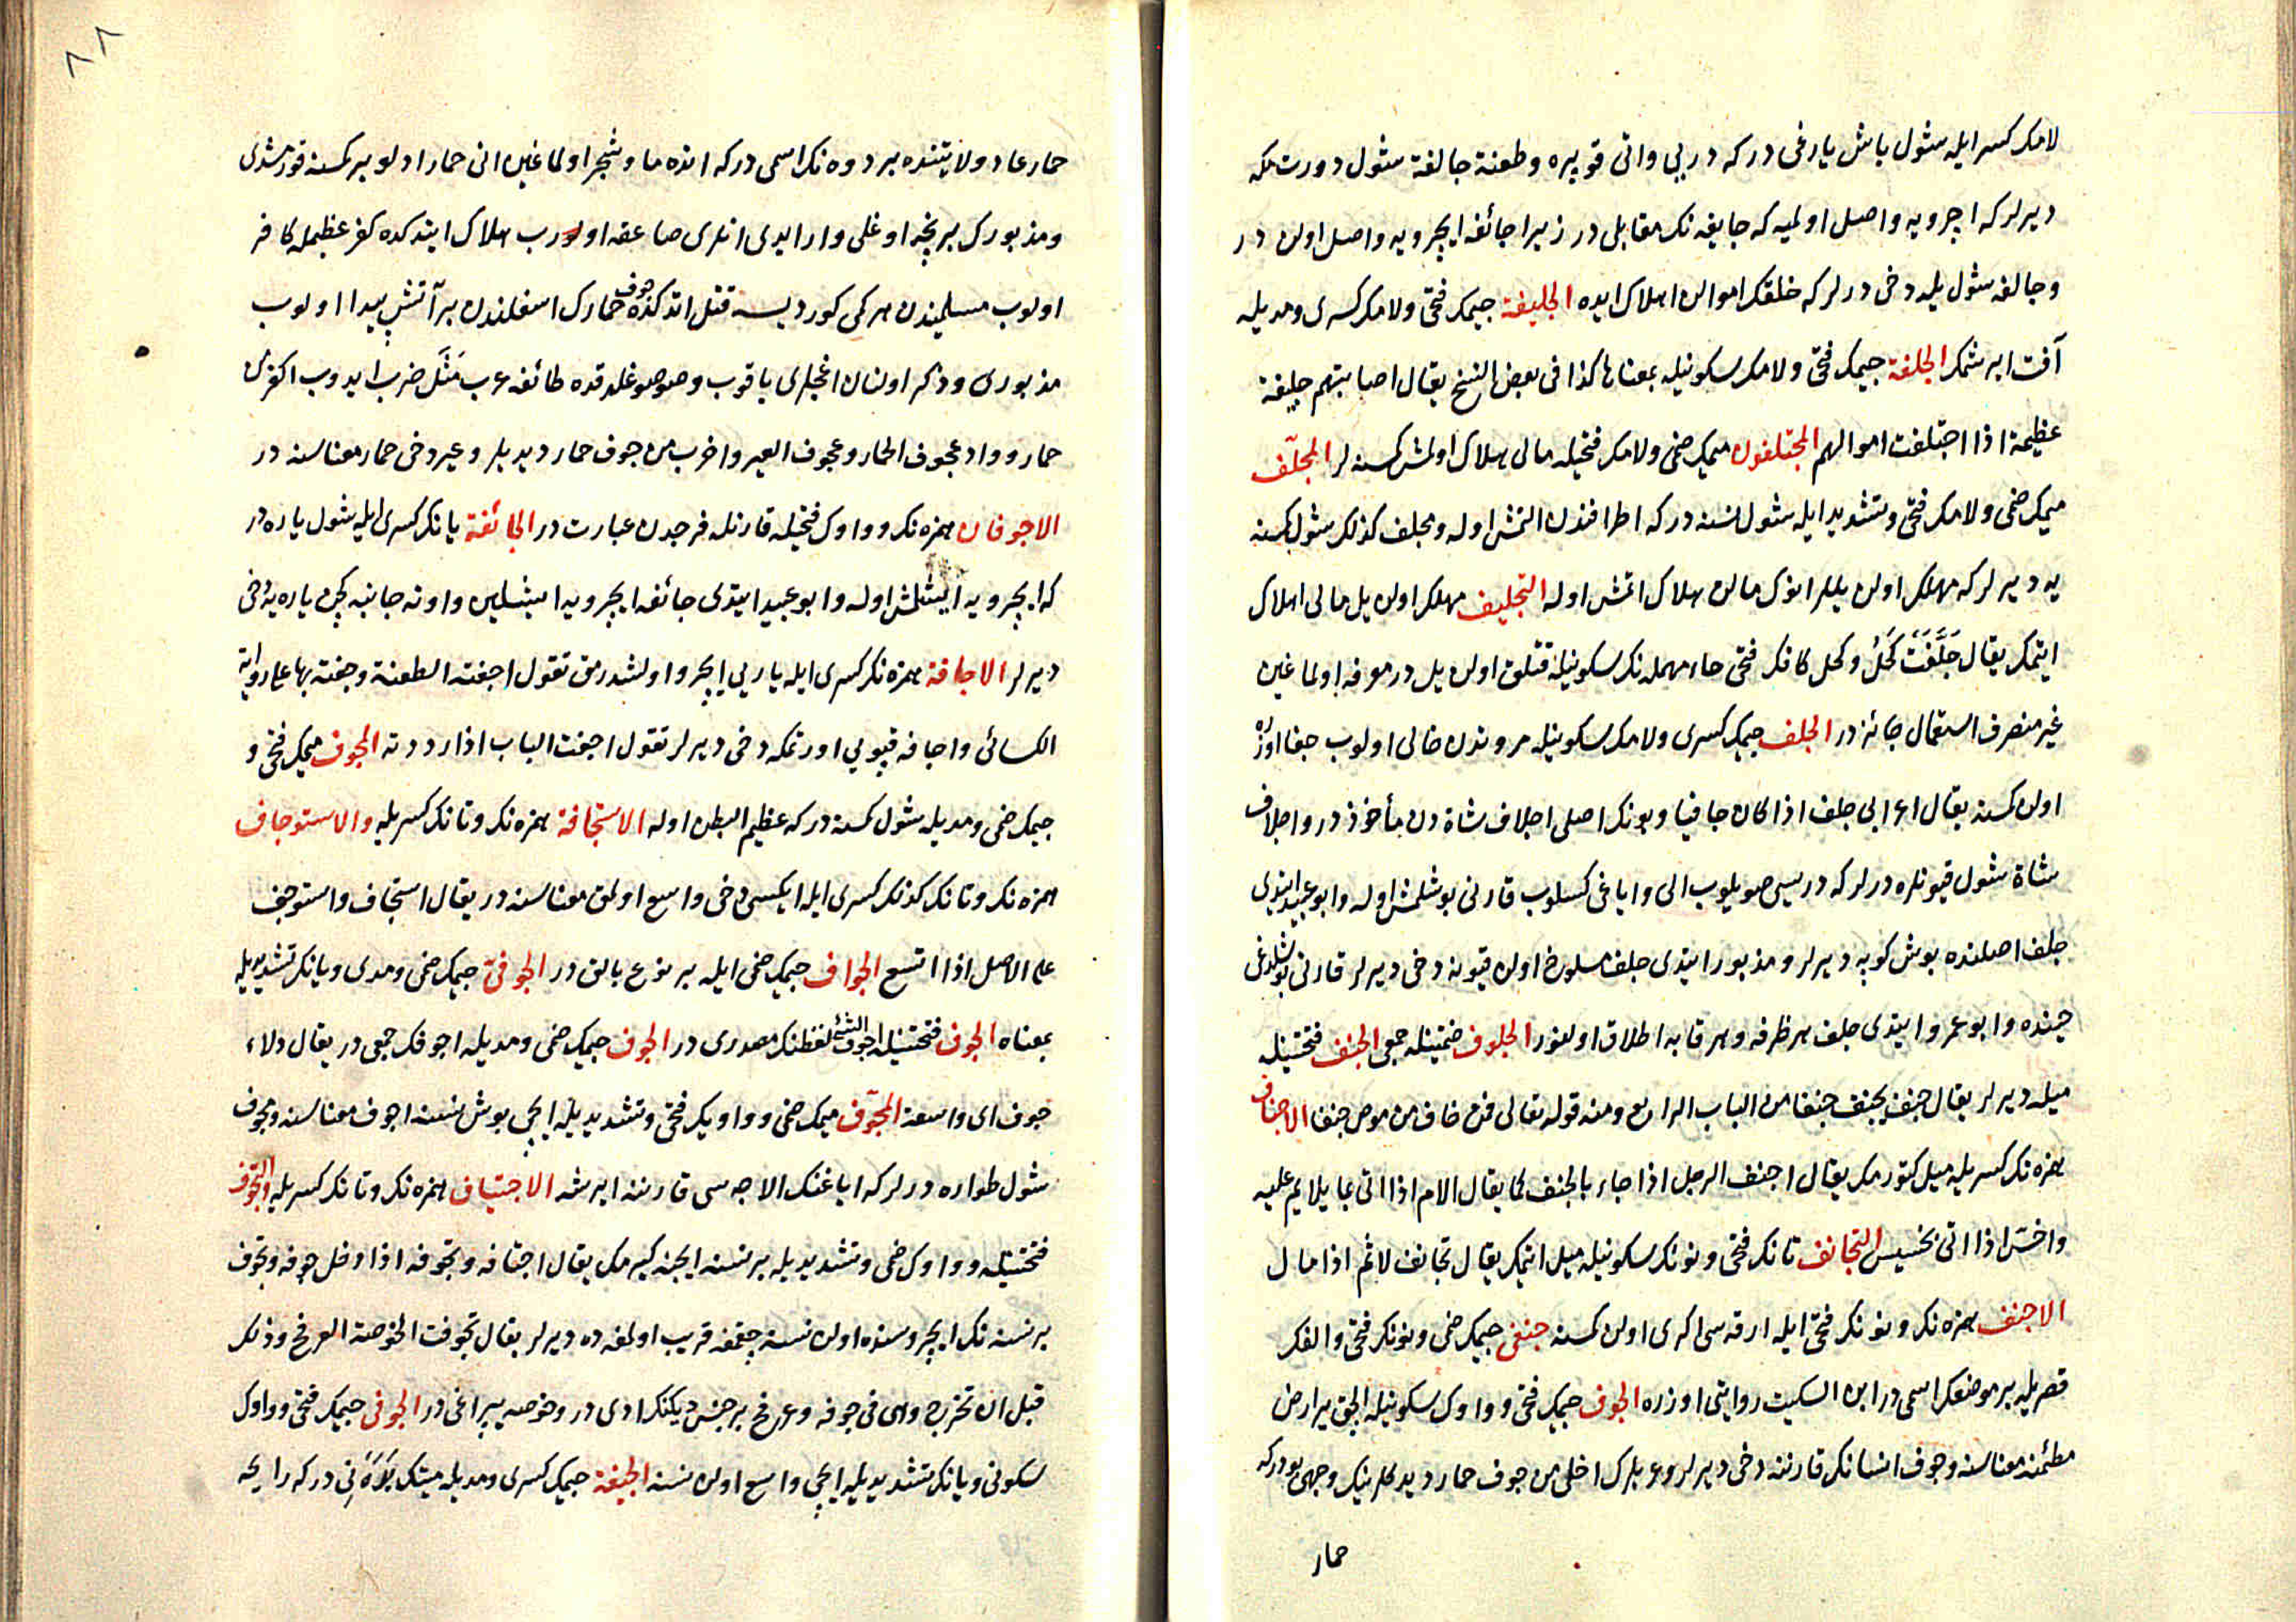 لامك كسر ايله شول باش يارغى دركه دريى واتى قوپره وطعنة جالفة شول دورتمكه
ديرلركه اچرويه واصل اولميه كه جايفه نك مقابلى در زيرا جائفه ايچرويه واصل اولن در
وجالفه شول يله دخى درلركه خلقك اموالن اهلاك ايده الجليفة جيمك فتحى ولامك كسرى ومديله
آفت ايرشمك الجلفة جيمك فتحى ولامك سكونيله بمعناها كذا فى بعض النسخ يقال اصابتهم جليفة
عظيمة اذا اجتلفت اموالهم المجتلفون ميمك ضمى ولامك فتحيله مالى هلاك اولمش كمسنه لر المجلّف
ميمك ضمى ولامك فتحى وتشديد ايله شول نسنه دركه اطرافندن النمش اوله ومجلف كذلك شول كمسنه
يه ديرلركه مهلك اولن ييللر انوك مالن هلاك اتمش اوله التجليف مهلك اولن يل مالى اهلاك
ايتمك يقال جَلَّفَتْ كَحْلُ وكحل كافك فتحى حاء مهمله نك سكونيله قتلق اولن يل در معرفه اولماغين
غير منصرف استعمال جائزدر الجلف جيمك كسرى ولامك سكونيله مروتدن خالى اولوب جفا اوزره
اولن كمسنه يقال اعرابى جلف اذا كان جافيا وبونك اصلى اجلاف شاة دن مأخوذدر واجلاف
شاة شول قيونلره درلركه دريسى صويلوب الى واياغى كسلوب قارنى بوشلمش اوله وابو عبيد ايتدى
جلف اصلنده بوش كوپه ديرلر ومذبور ايتدى جلف مسلوخ اولن قيونه دخى ديرلر قارنى بوشلدغى
حينده وابو عمرو ايتدى جلف هر ظرفه وهر قابه اطلاق اولنور الجلوف ضمتينله جمعى الجنف فتحتينله
ميله ديرلر يقال جنف يجنف جنفا من الباب الرابع ومنه قوله تعالى فمن خاف من موص جنفا الاجناف
همزه نك كسريله ميل كتورمك يقال اجنف الرجل اذا جاء بالجنف كما يقال الام اذا اتى بما يلام عليه
واخسّ اذا اتى بخسيس التجانف تانك فتحى ونونك سكونيله ميل اتمك يقال تجانف لاثم اذا مال
الاجنف همزه نك ونونك فتحى ايله ارقه سى اكرى اولن كمسنه جنفى جيمك ضمى ونونك فتحى والفك
قصريله بر موضعك اسمى در ابن السكيت روايتى اوزره الجوف جيمك فتحى وواوك سكونيله الچق ير ارض
مطئنه معناسنه وجوف انسانك قارننه دخى ديرلر وعربلرك اخلى من جوف حمار ديدكلرينك وجهى بودركه
حمار
٨٨
حمار عاد ولايتنده بر دوه نك اسمى دركه انده ما وشجر اولماغين انى حمار ادلو بر كمسنه قورمشدى
ومذبورك بر نچه اوغلى وار ايدى انلرى صاعقه اورب هلاك ايتدكده كفر عظيمله كافر
اولوب مسلميندن هر كمى كورديسه قتل اتدكده جوف حمارك اسفلندن بر آتش پيدا اولوب
مذبورى وذكر اولنان اغجلرى ياقوب وصو صوغلدقده طائفه عرب مَثَل ضرب ايدوب اكفر من
حمار وواد بجوف الحمار وبجوف العير واخرب من جوف حمار ديديلر وعير دخى حمار معناسنه در
الاجوفان همزه نك وواوك فتحيله قارنله فرجدن عبارت در الجائفة يانك كسرى ايله شول ياره در
كه ايچرويه ايشلمش اوله وابو عبيد ايتدى جائفه ايچرويه ايشلين واوته جانبه كچن ياره يه دخى
ديرلر الاجافة همزه نك كسرى ايله ياريى ايچرو اولشدرمق تقول اجفته الطعنة وجفته بها على رواية
الكسائى واجافه قپويى اورتمكه دخى ديرلر تقول اجفت الباب اذا رددته المجوف ميمك فتحى و
جيمك ضمى ومديله شول كمسنه دركه عظيم البطن اوله الاستجافة همزه نك وتانك كسريله والاستوجاف
همزه نك وتانك كذلك كسرى ايله ايكسى دخى واسع اولمق معناسنه در يقال استجاف واستوجف
على الاصل اذا اتسع الجواف جيمك ضمى ايله بر نوع بالق در الجوفىّ جيمك ضمى ومدى ويانك تشديديله
بمعناه الجوف فتحتينله اجوف الشئ لفظنك مصدرى در الجوف جيمك ضمى ومديله اجوفك جمعى در يقال دلاء
جوف اى واسعة المجوّف ميمك ضمى وواويك فتحى وتشديديله ايچى بوش نسنه اجوف معناسنه ومجوف
شول طواره درلركه اياغنك الاجه سى قارننه ايرشه الاجتياف همزه نك وتانك كسريله والتجوّف
فتحتينله وواوك ضمى وتشديديله بر نسنه ايچنه كيرمك يقال اجتافه وتجوفه اذا دخل جوفه وتجوف
بر نسنه نك ايچروسنده اولن نسنه چقمغه قريب اولمغه ده ديرلر يقال تجوفت الخوصة العرفج وذلك
قبل ان تخرج وهى فى جوفه وعرفج بر جنس ديكنك ادى در وخوصه يپراغى در الجوفى جيمك فتحى وواوك
سكونى ويانك تشديديله ايچى واسع اولن نسنه الجيفة جيمك كسرى ومديله ميتك بدنى دركه رايحه